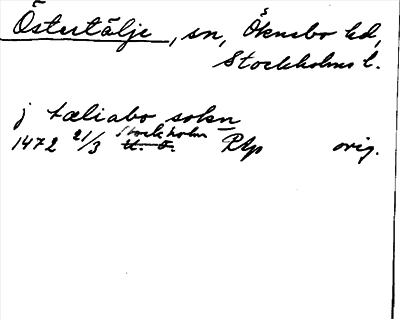 Östertälje, sn, Öknebo hd,
Stockholms l.
j tæliabo sokn
1472 21/3 Stockholm u. o. RAp orig.